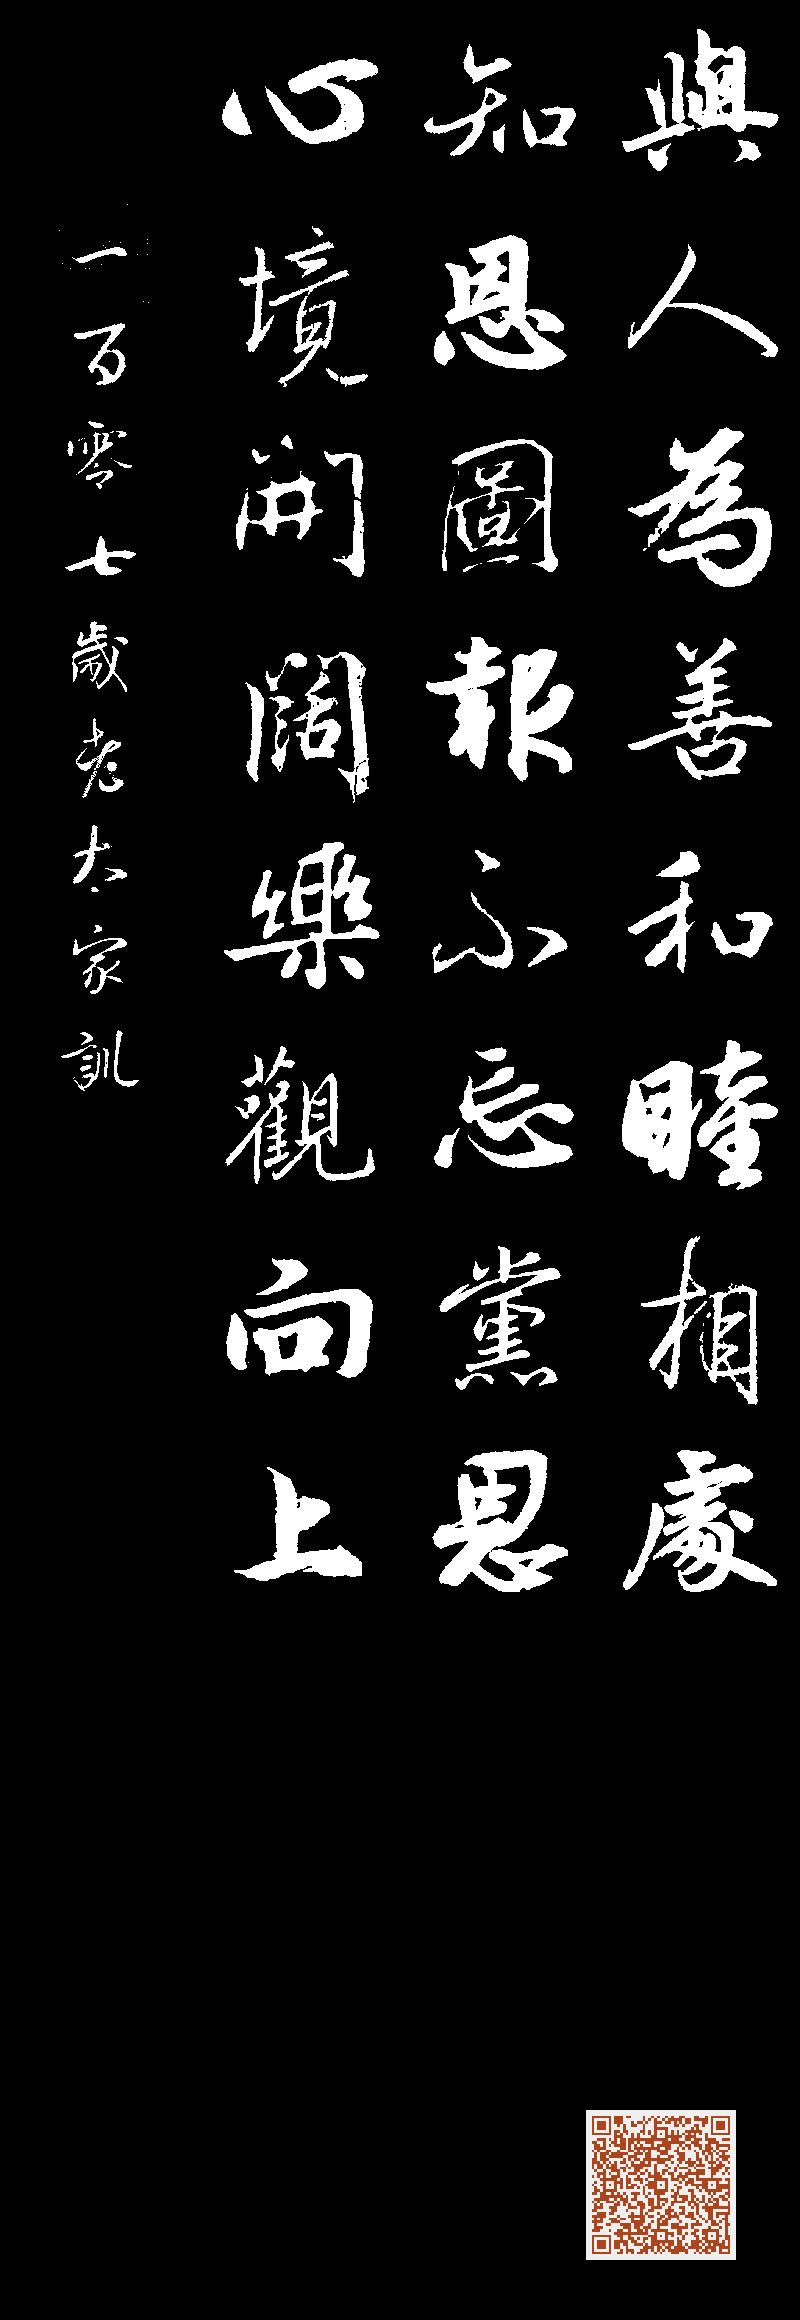 與人為善和睦相處
知恩圖報不忘黨恩
心境開闊樂觀向上
一百零七歲老太家訓